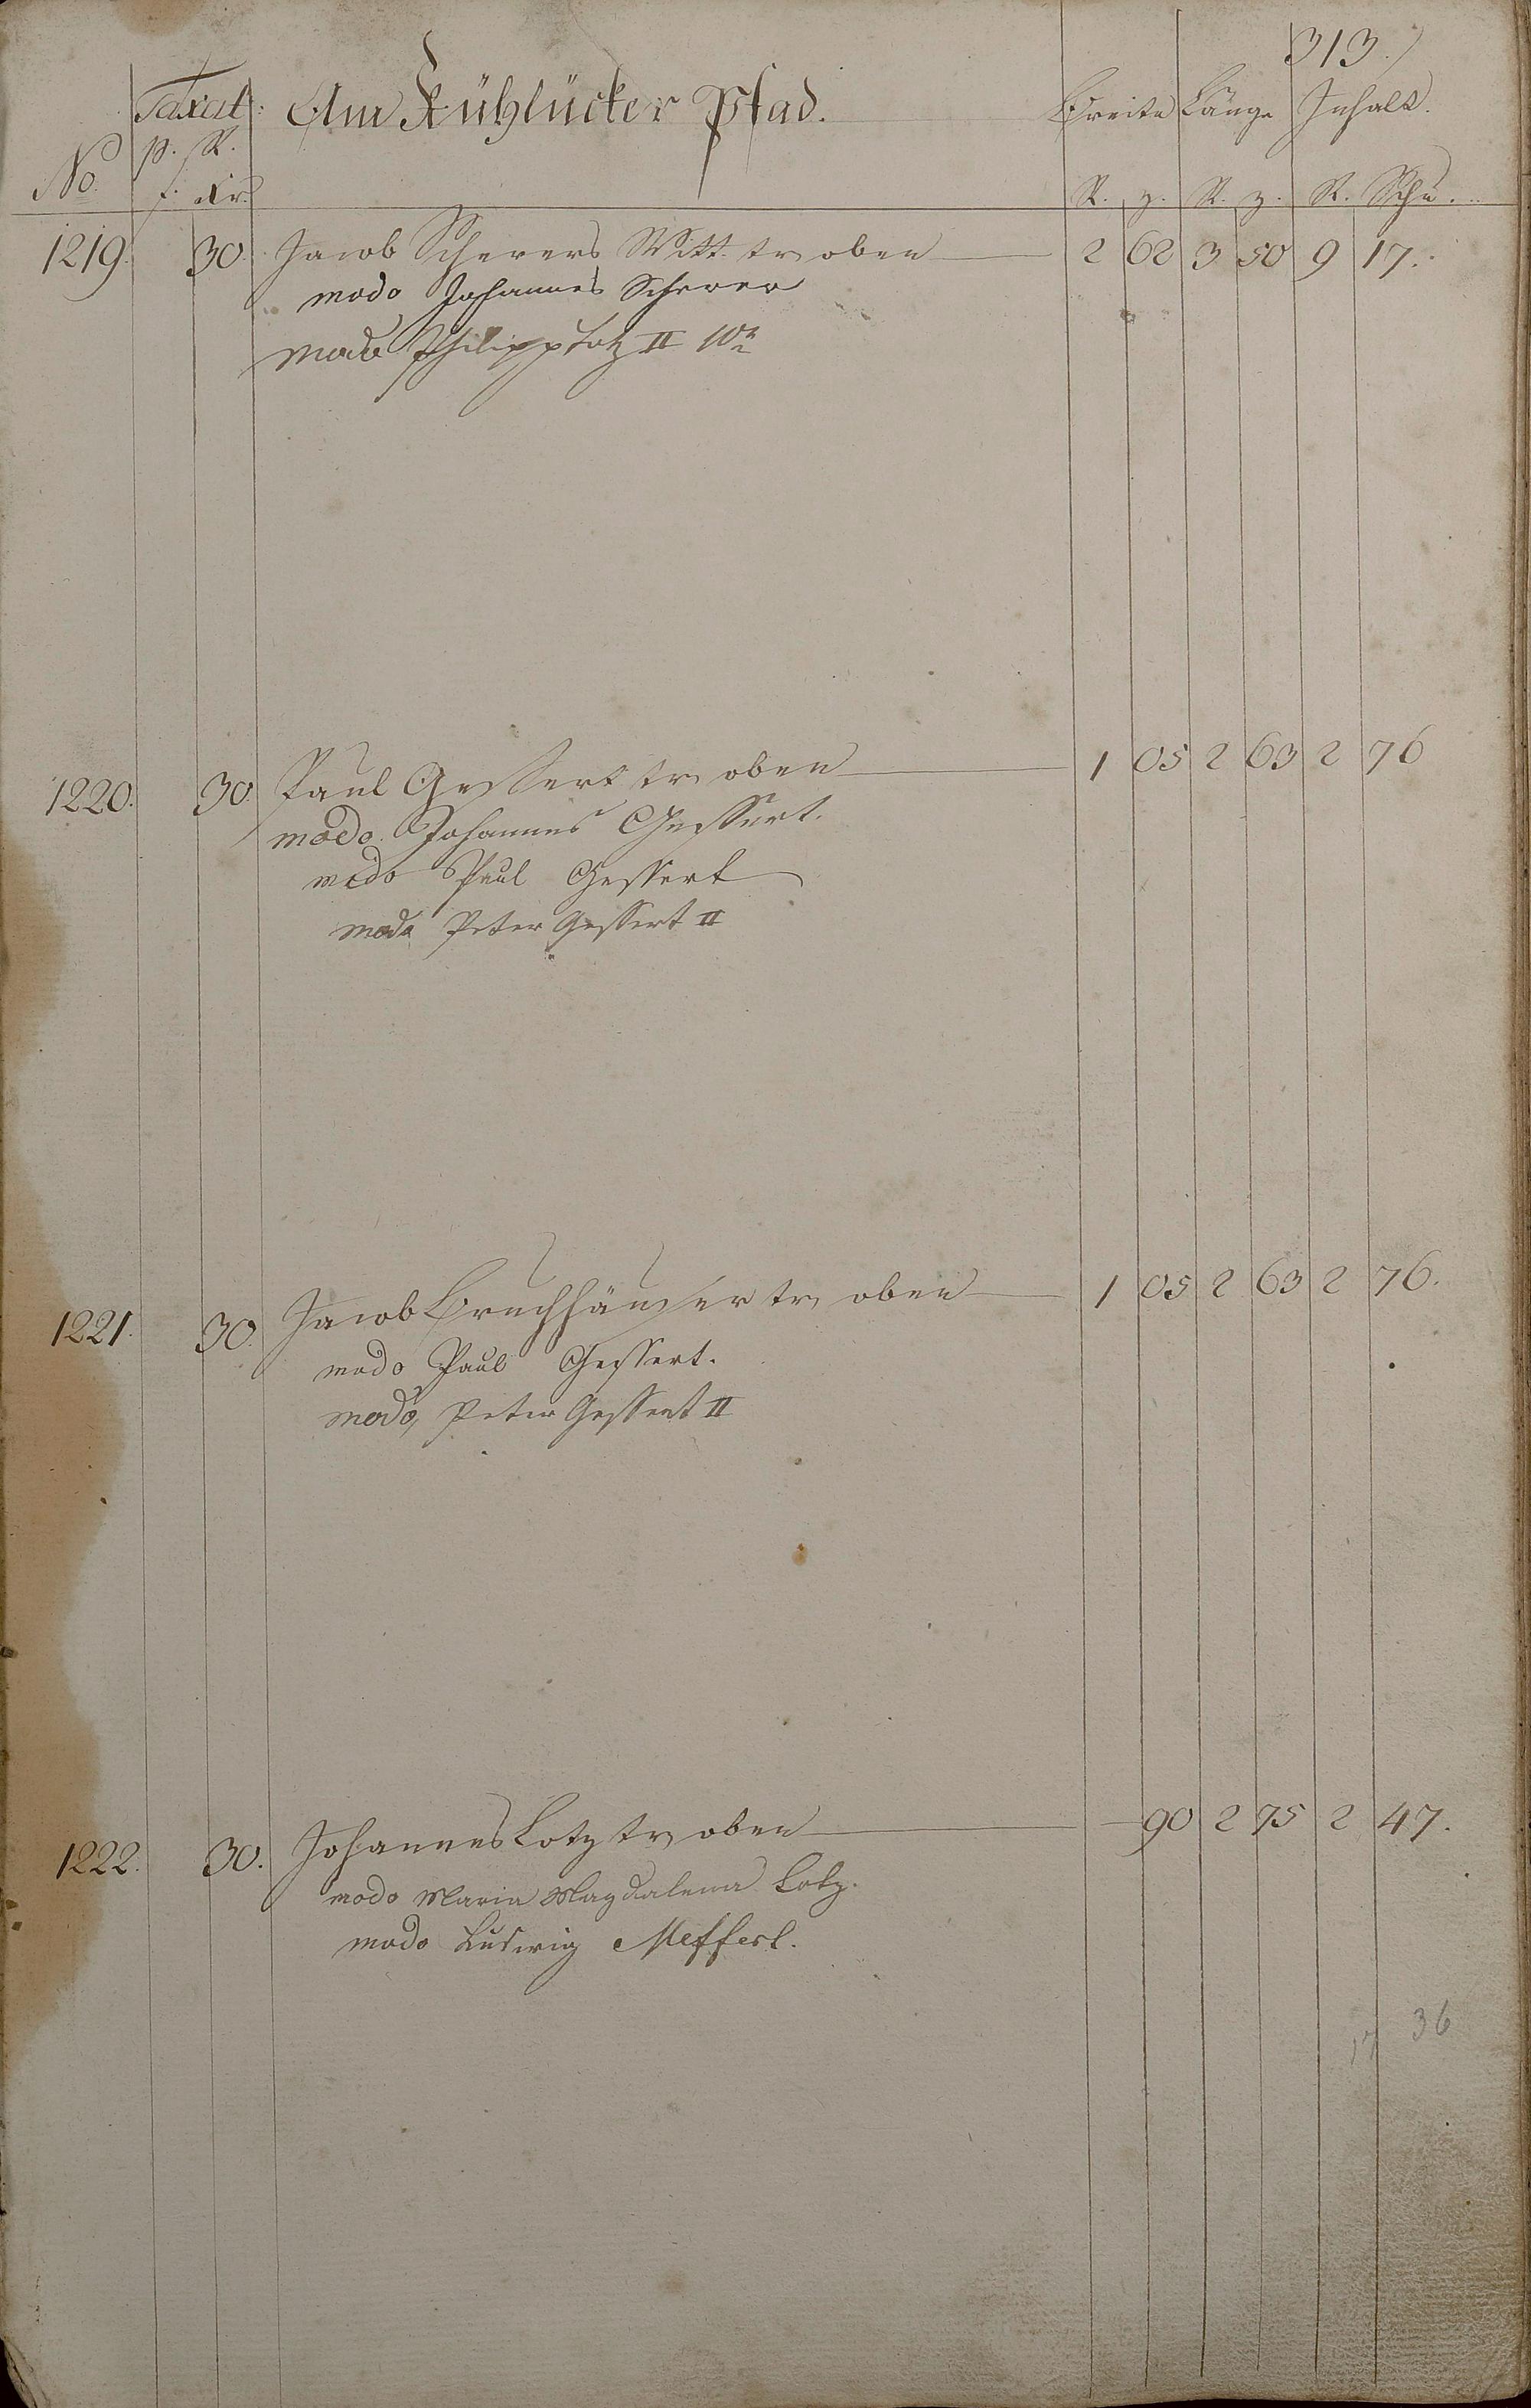 313.)
Taxat: Am Kühlücker Pfad. Breite Länge Inhalt.
p. R.
No. f. Kr. R. z. R. z. R. Schu.
1219. 30. Jacob Scherers Witt. tr oben 2 62 3 50 9 17.
modo Johannes Scherer
modo Philipp Lotz II
1220. 30. Paul Gessert tr oben 1 05 2 63 2 76
modo Johannes Gessert.
modo Paul Gessert
modo Peter Gessert II
1221. 30. Jacob Bruchhäuser tr oben 1 05 2 63 2 76.
modo Paul Gessert.
modo, Peter Gessert II
1222. 30. Johannes Lotz tr oben — 90 2 75 2 47.
modo Maria Magdalena Lotz.
modo Ludwig Meffert.
17 36